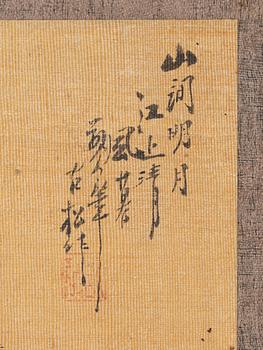 山洞明月
江上清
風暮
筆
古松作